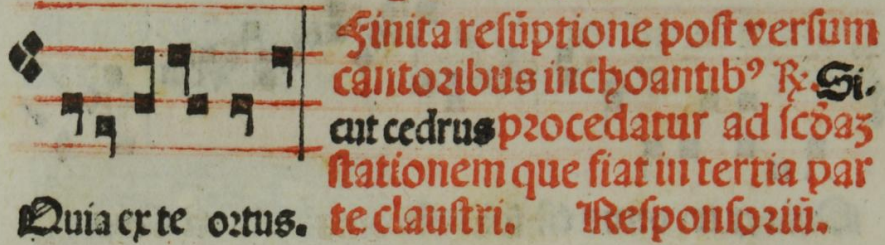 Quia ex te ortus.
Finita resūptione post versum
cantoribus inchoantibꝰ ℟. Si-
cut cedrus procedatur ad scd̄aʒ
stationem que fiat in tertia par
te claustri. Responsoriū.